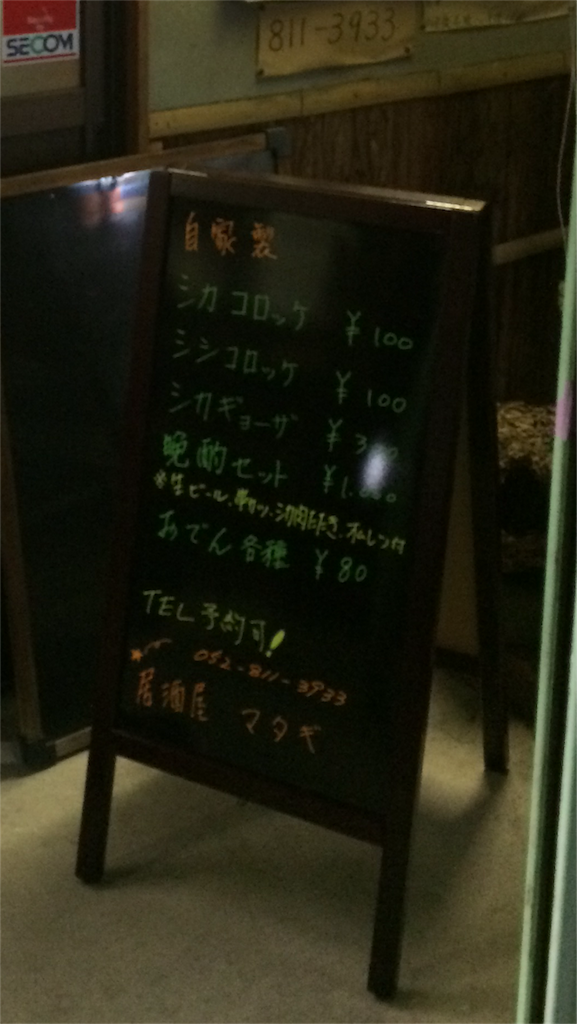 SECOM
811-3933
自家製
シカコロッケ ¥100
シシコロッケ ¥100
シカギョーザ ¥300
晩酌セット ¥1,000
※生ビール、串カツ、
おでん各種 ¥80
TEL予約可!
052-811-3933
居酒屋 マタギ